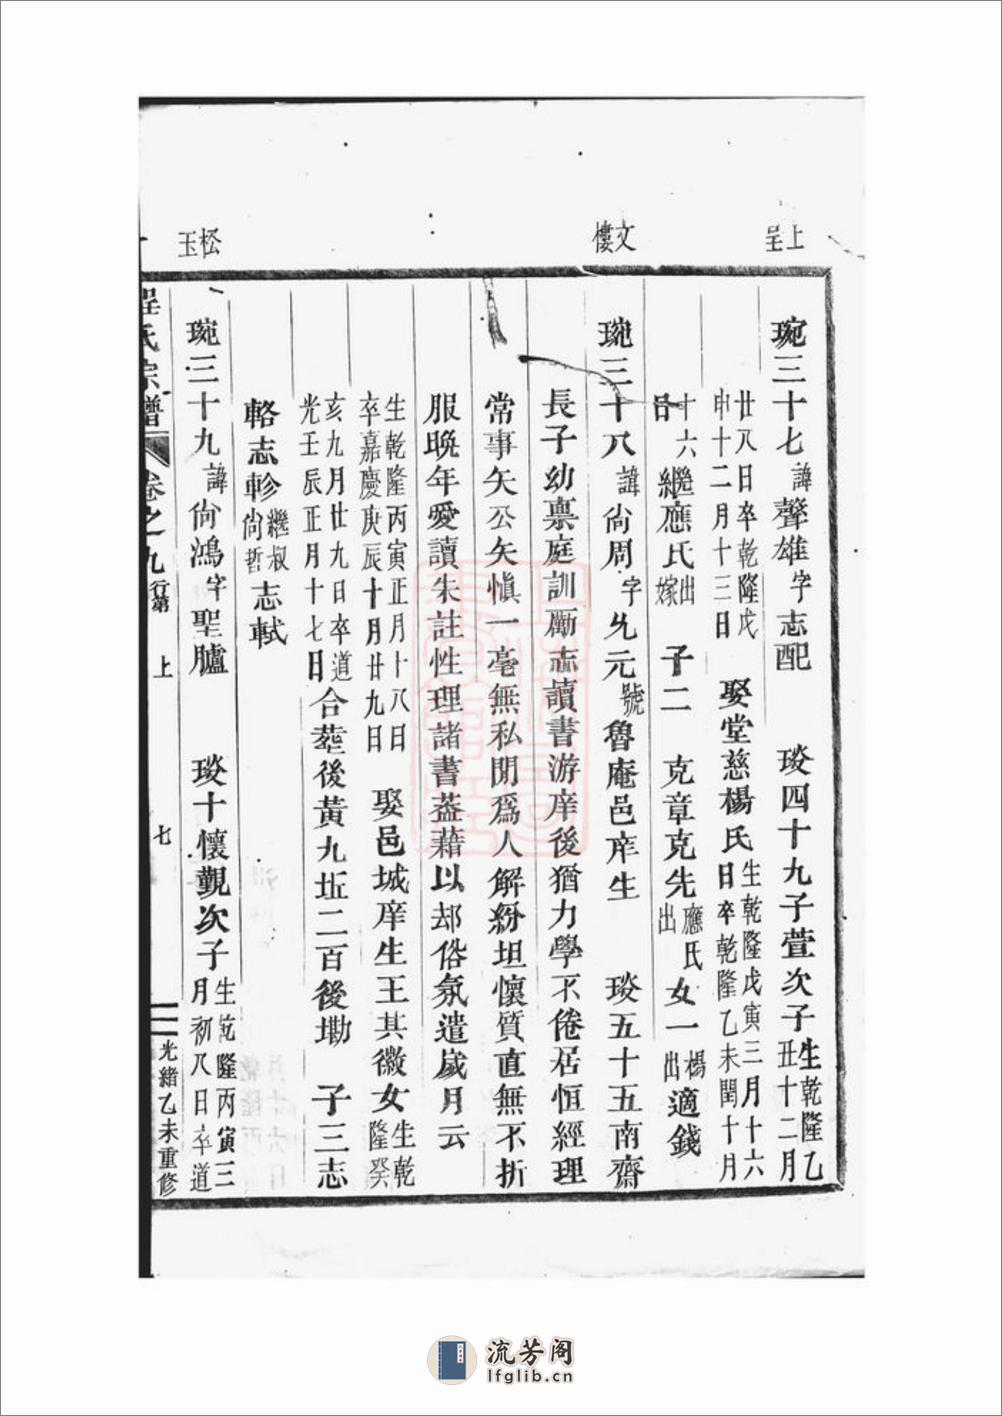 上呈
文樓
松玉
琬三十七諱聲雄字志配 琰四十九子萱次子生乾隆乙丑十二月
廿八日卒乾隆戊申十二月十三日 娶堂慈楊氏生乾隆戊寅三月十六日卒乾隆乙未閏十月
十六日繼應氏出嫁 子二 克章克先應氏出女一楊出適錢
琬三十八諱尙周字允元號魯庵邑庠生 琰五十五南齋
長子幼稟庭訓勵志讀書游庠後猶力學不倦居恒經理
常事矢公矢愼一毫無私閒爲人解紛坦懷質直無不折
服晚年愛讀朱註性理諸書葢藉以却俗氛遣歲月云
生乾隆丙寅正月十八日卒嘉慶庚辰十月廿九日 娶邑城庠生王其徽女生乾隆癸
亥九月廿九日卒道光壬辰正月十七日合塟後黃九坵二百後塾 子三志
輅志軫繼叔尙哲志軾
琬三十九諱尙鴻字聖臚 琰十懷觀次子生乾隆丙寅三月初八日卒道
程氏宗譜 卷之九行第 上 七 光緒乙未重修
流芳阁
lfglib.cn